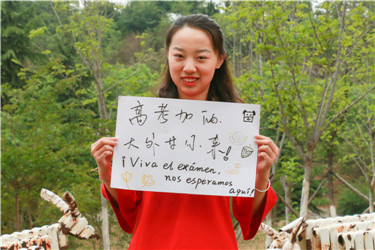 高考加油
大外甘小菜!
¡Viva el exámen,
nos esperamos
aquí!